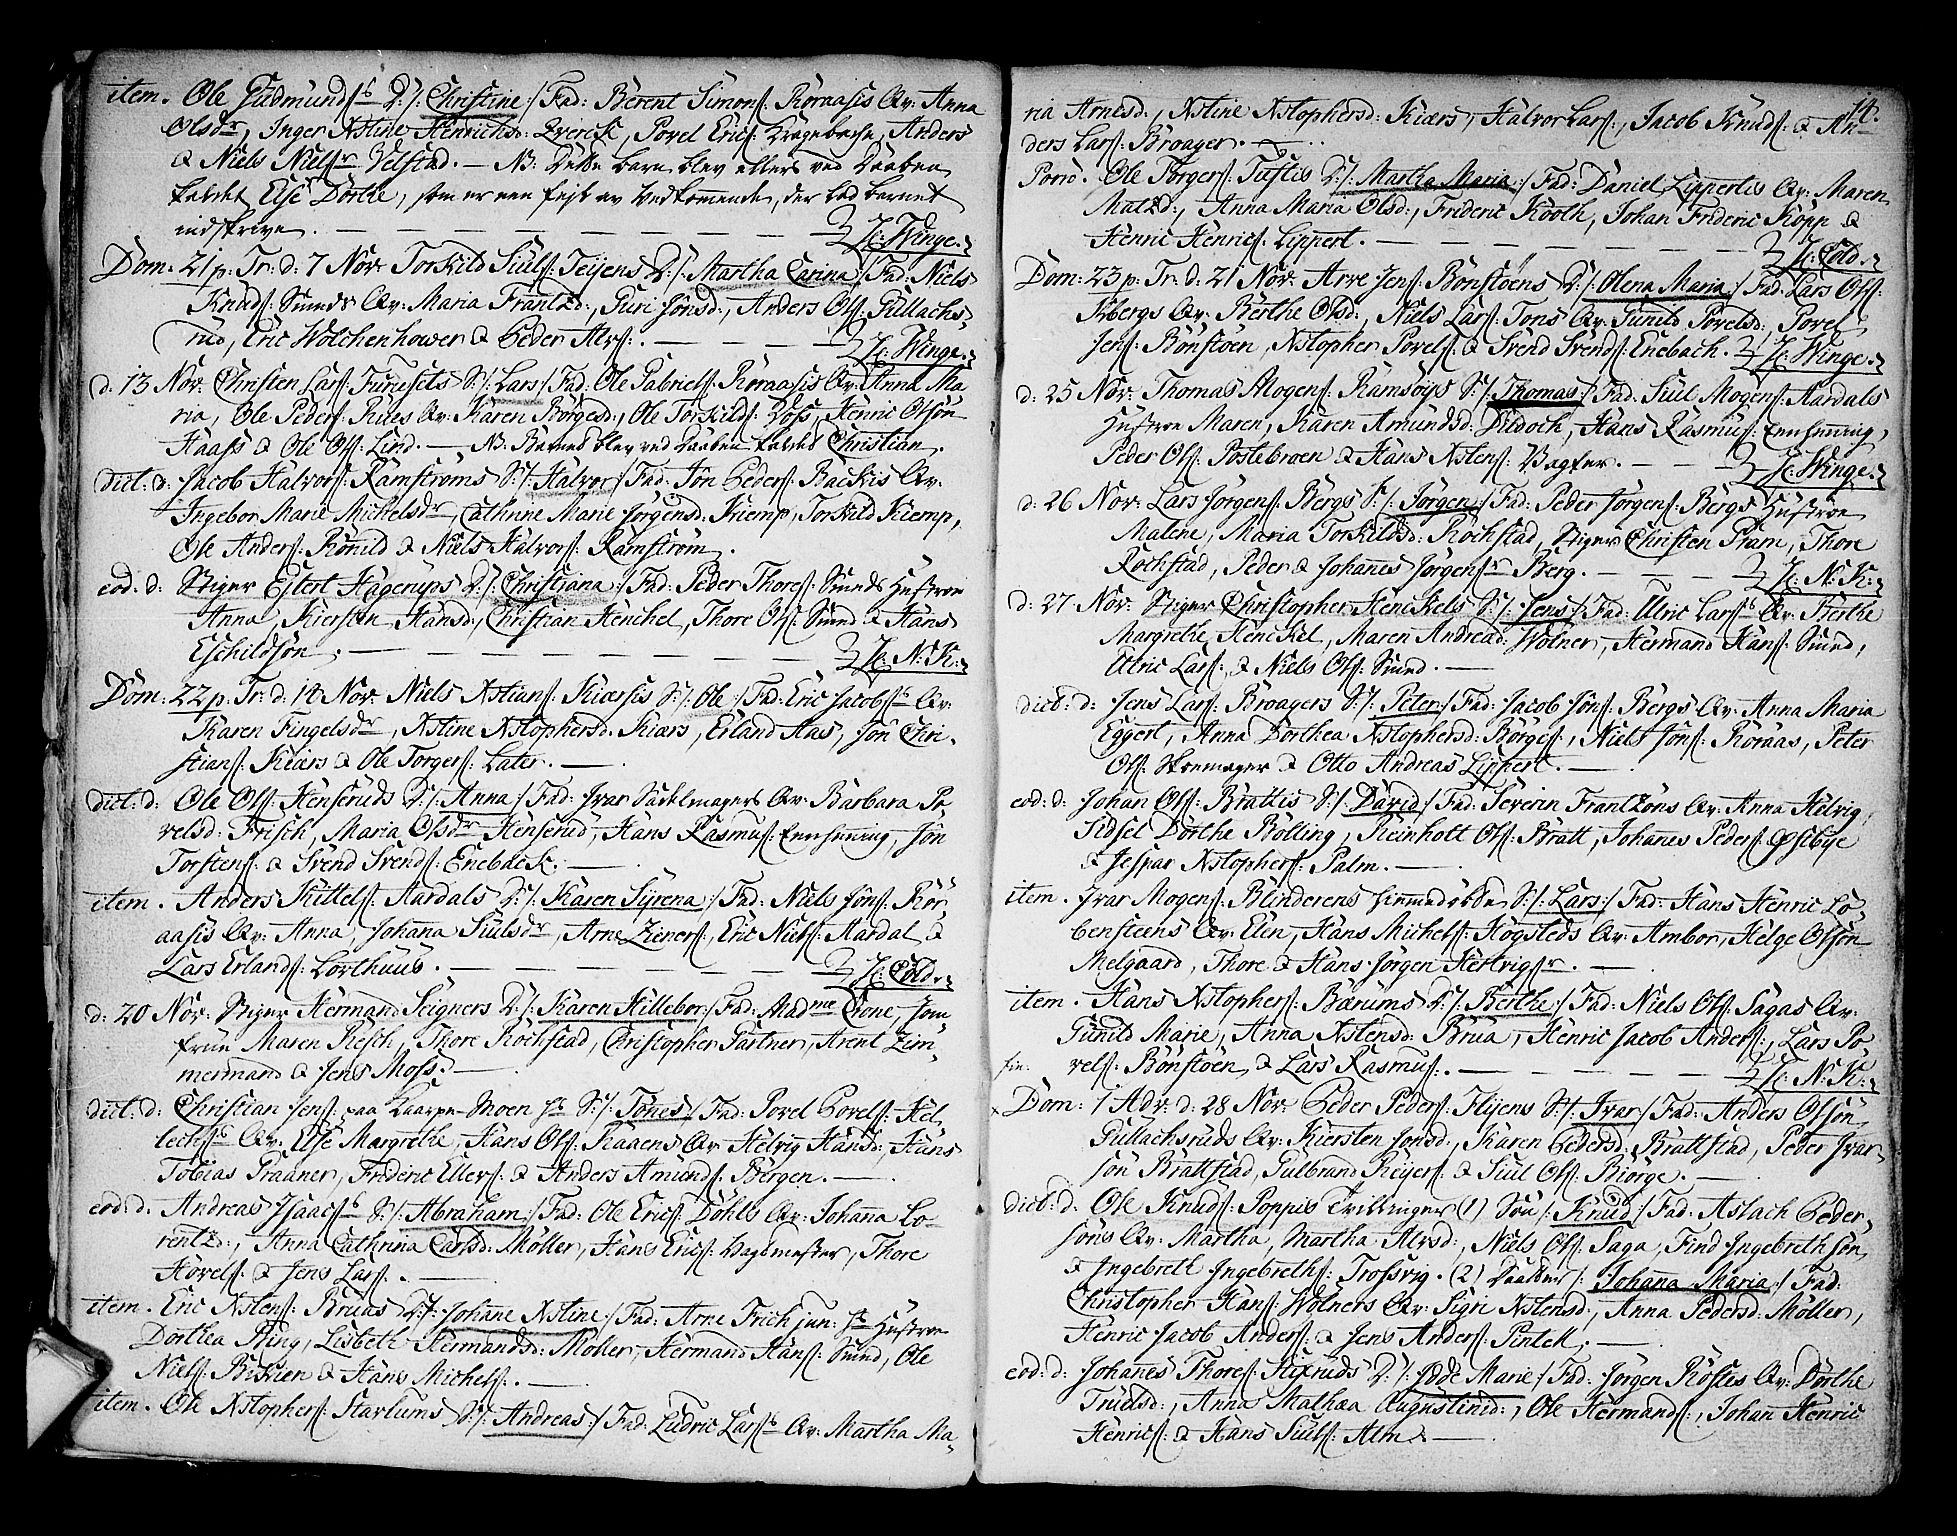 item. Ole Gudmunds: D:/: Christine:/ Fad: Berent Simons: Roraasis Qv: Anna
Olsdr, Inger Xstine Henrichs: Povel Erics: Anders
& Niels Nielsr Velstad. — NB: Dette barn blev ellers ved Daaben
kaldet Else Dorthe, som er een fejl av Vedkommende, der lod barnet
indskrive. — H: Winge.
Dom: 21 p: Tr: d: 7 Nov: Torskild Siuls: Teijens D:/: Martha Carina:/ Fad: Niels
Knuds: Smeds Qv: Maria Frantzd:, Guri Jonsd:, Anders Ols: Gullachs-
rud, Eric Wolchenhower & Peder Alvs:. — H: Winge.
d: 13 Nov: Christen Lars: Furusets S:/: Lars:/ Fad: Ole Gabriels: Roraasis Qv: Anna Ma-
ria, Ole Peders: Rues Qv: Karen Borgesd:, Ole Torskilds: Voss, Henric Olsøn
Haass & Ole Ols: Lind. — NB: Barnet blev ved Daaben kaldet Christian.
dict: d: Jacob Halvors: Ramstroms S:/: Halvor:/ Fad: Jon Peders: Backis Qv:
Ingebor Marie Michelsdr, Cathrine Marie Jørgensd: Kiemp, Torskild Kiemp,
Ole Anders: Ronild & Niels Halvors: Ramstrøm.
eod: d: Stiger Estert Hagerups D:/: Christiana:/ Fad: Peder Thores: Smeds Hustroe
Anna, Kiersten Hansd:, Christian Henchel, Thore Ols: Smed & Hans
Eschildsøn. — H: N: K:
Dom: 22 p: Tr: d: 14 Nov: Niels Xstians: Kiærsis S:/: Ole:/ Fad: Eric Jacobs: Qv:
Karen Fingelsdr, Xstine Xstophersd: Kiærs, Erland Aas, Jon Chri-
stians: Kiærs & Ole Torgers: Later. —
dict: d: Ole Ols: Henseruds D:/: Anna:/ Fad: Ivar Sadelmagers Qv: Barbara Po-
velsd: Frisch, Maria Olsdr Henserud, Hans Rasmus: Jon
Torstens: & Svend Svends: Eneback. —
item. Anders Kittels: Aardals D:/: Karen Syrena:/ Fad: Niels Jons: Ror-
aasis Qv: Anna, Johana Siulsdr, Arne Zieners:, Eric Niels: Aardal &
Lars Erlands: Lorthuus. — H: Cold.
d: 20 Nov: Stiger Herman Seigners D:/: Karen Hillebor:/ Fad: Madme Crone, Jom-
frue Maren Resch, Thore Rochstad, Christopher Gartner, Arent Zim-
mermand & Jens Moss. —
dict: d: Christian Jens: paa Moen S:/: Tønes:/ Fad: Povel Povels: Hel-
lechs: Qv: Else Margrethe, Hans Ols: Raaens Qv: Helvig Hansd:, Hans
Tobias Graaner, Frideric Ellers: & Anders Amunds: Borgen. —
eod: d: Andreas Isaacs: S:/: Abraham:/ Fad: Ole Erics: Dohls Qv: Johanna Lo-
rentzd:, Anna Cathrina Carlsd: Møller, Hans Erics: Hagemester, Thore
Hovels: & Jens Lars:. —
item. Eric Xstens: Bruas D:/: Johane Xstine:/ Fad: Arne Frich jun: Hustroe
Dorthea Ring, Lisbeth Hermandsd: Møller, Hermand Hans: Smed, Ole
Niels: & Hans Michels:. —
item. Ole Xstophers: Starlums S:/: Andreas:/ Fad: Ludvic Lars: Qv: Martha Ma-
14.
ria Arnesd:, Xstine Xstophersd: Kiærs, Halvor Lars:, Jacob Knuds: & An-
ders Lars: Broager. —
Ole Torgers: Tuftis D:/: Martha Maria:/ Fad: Daniel Lippertis Qv: Maren
Matzd:, Anna Maria Olsd:, Frideric Kooth, Johan Frideric Kopp &
Henric Henrics: Lippert. — H: Cold.
Dom: 23 p: Tr: d: 21 Nov: Arve Jens: Bonstoens D:/: Olena Maria:/ Fad: Lars Ols:
Kbergs Qv: Berthe Olsd:, Niels Lars: Tons Qv: Gunild Povelsd:, Povel
Jens: Bonstoen, Xstopher Povels: & Svend Svends: Enebach. H: Winge.
d: 25 Nov: Thomas Mogens: Ramsøiys S:/: Thomas:/ Fad: Siul Mogens: Aardals
Hustroe Maren, Karen Amundsd: Hans Rasmus:
Peder Ols: Postebroen & Hans Xstens: Vegter. — H: Winge.
d: 26 Nov: Lars Jørgens: Bergs S:/: Jørgen:/ Fad: Peder Jørgens: Bergs Hustroe
Malene, Maria Torskildsd: Rochstad, Stiger Christen Pram, Thore
Rochstad, Peder & Johannes Jørgensr Berg. — H: N: K:
d: 27 Nov: Stiger Christopher Henckels S:/: Jens:/ Fad: Ulric Lars: Qv: Berthe
Margrethe Henckel, Maren Andread: Wolner, Hermand Hans: Smed,
Ulric Lars: & Niels Ols: Smed. —
dict: d: Jens Lars: Broagers S:/: Peter:/ Fad: Jacob Jons: Bergs Qv: Anna Maria
Eggert, Anna Dorthea Xstophersd: Borges:, Niels Jons: Roraas, Peter
Ols: Skoemager & Otto Andreas Lippert. —
eod: d: Johan Ols: Brattis S:/: David:/ Fad: Severin Frantzøns Qv: Anna Helvig,
Sidsel Dorthe Bolling, Reinholt Ols: Bratt, Johanes Peders: Øsebye
& Jespar Xstophers: Palm. —
item. Ivar Mogens: Blinderens S:/: Lars:/ Fad: Hans Henric Lo-
bensteens Qv: Elen, Hans Michels: Hogsteds Qv: Ambor, Helge Olsøn
Melgaard, Thore & Hans Jørgen Hertvigsr. —
item. Hans Xstophers: Bærums D:/: Berthe:/ Fad: Niels Ols: Sagas Qv:
Gunild Marie, Anna Xstensd: Brua, Henric Jacob Anders:, Lars Po-
vels: Bønstoen, & Lars Rasmus:. — H: N: K:
Dom: 1 Adv: d: 28 Nov: Peder Peders: Flijens S:/: Ivar:/ Fad: Anders Olsøn
Gullachsruds Qv: Kiersten Jonsd:, Karen Pedersd: Brattstad, Peder Ivar-
søn Brattstad, Gulbrand Reijers: & Siul Ols: Biørge. —
dict: d: Ole Knuds: Poppis Tvillinger (1) Søn /: Knud:/ Fad: Aslach Peder-
søns Qv: Martha, Martha Alvsd:, Niels Ols: Saga, Find Ingebrethsøn,
& Ingebrett Ingebreths: Trossvig. (2) Daatter /: Johana Maria:/ Fad:
Christopher Hans: Wolners Qv: Sigri Xstensd:, Anna Pedersd: Møller,
Henric Jacob Anders: & Jens Anders: Pintck. —
eod: d: Johanes Thores: Hexruds D:/: Edde Marie:/ Fad: Jørgen Rostis Qv: Dorthe
Truelsd:, Anna Mathæa Augustinid:, Ole Hermands:, Johan Henric
Henrics: & Hans Siuls: Alm. —